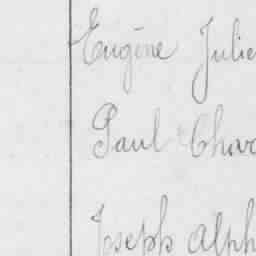 Eugène Julie
Paul Chova
Joseph Alph